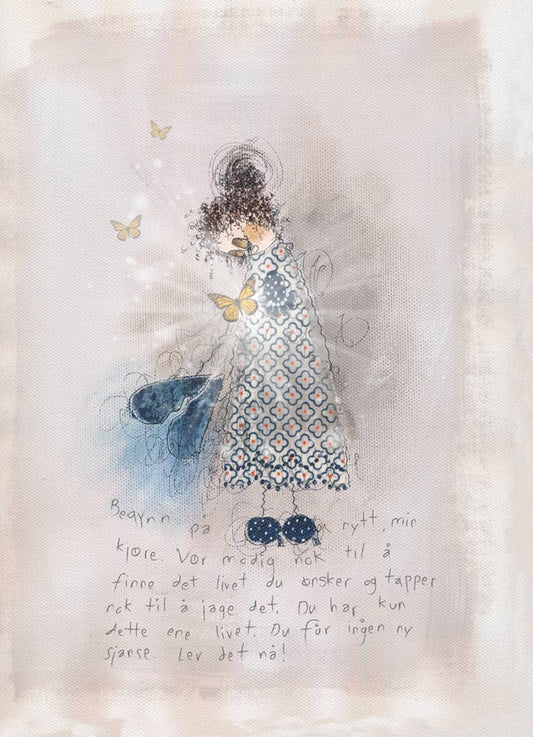 Begynn på nytt, min
kjære. Vær modig nok til å
finne det livet du ønsker og tapper
nok til å jage det. Du har kun
dette ene livet. Du får ingen ny
sjanse. Lev det nå!